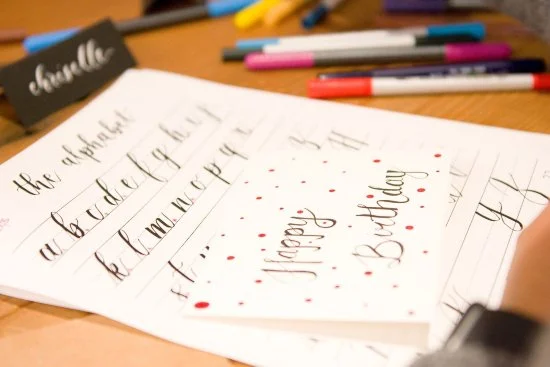 chriselle
the alphabet
a b c d e f g h i j
k l m n o p q r
s t
Happy
Birthday
y z